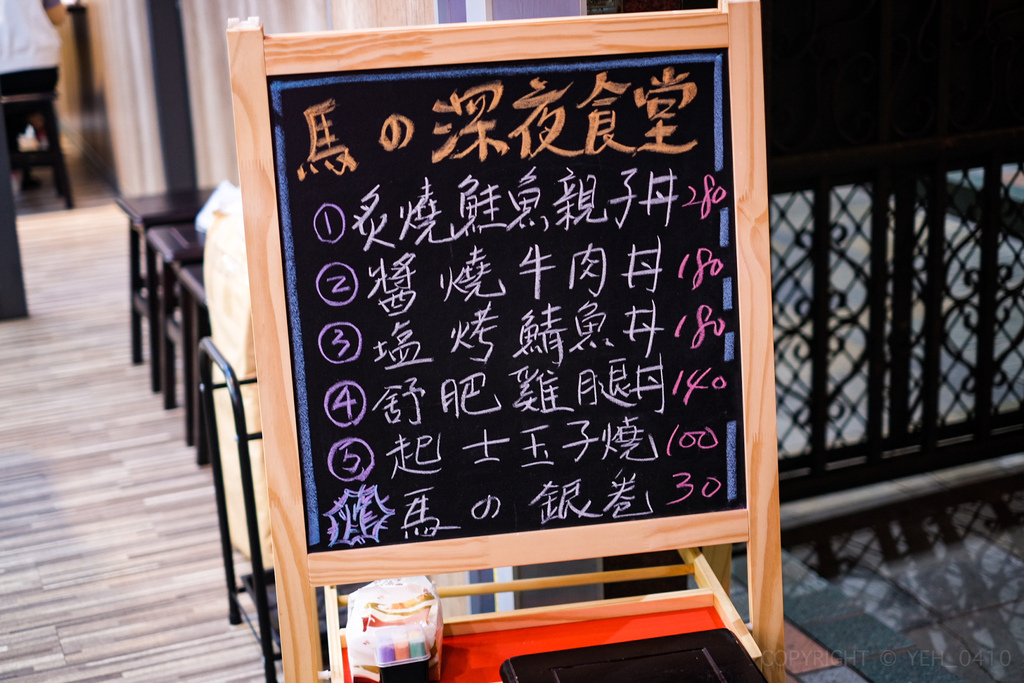 馬の深夜食堂
① 炙燒鮭魚親子丼 280
② 醬燒牛肉丼 180
③ 塩烤鯖魚丼 180
④ 舒肥雞腿丼 140
⑤ 起士玉子燒 100
馬の銀卷 30
COPYRIGHT © YEH_0410